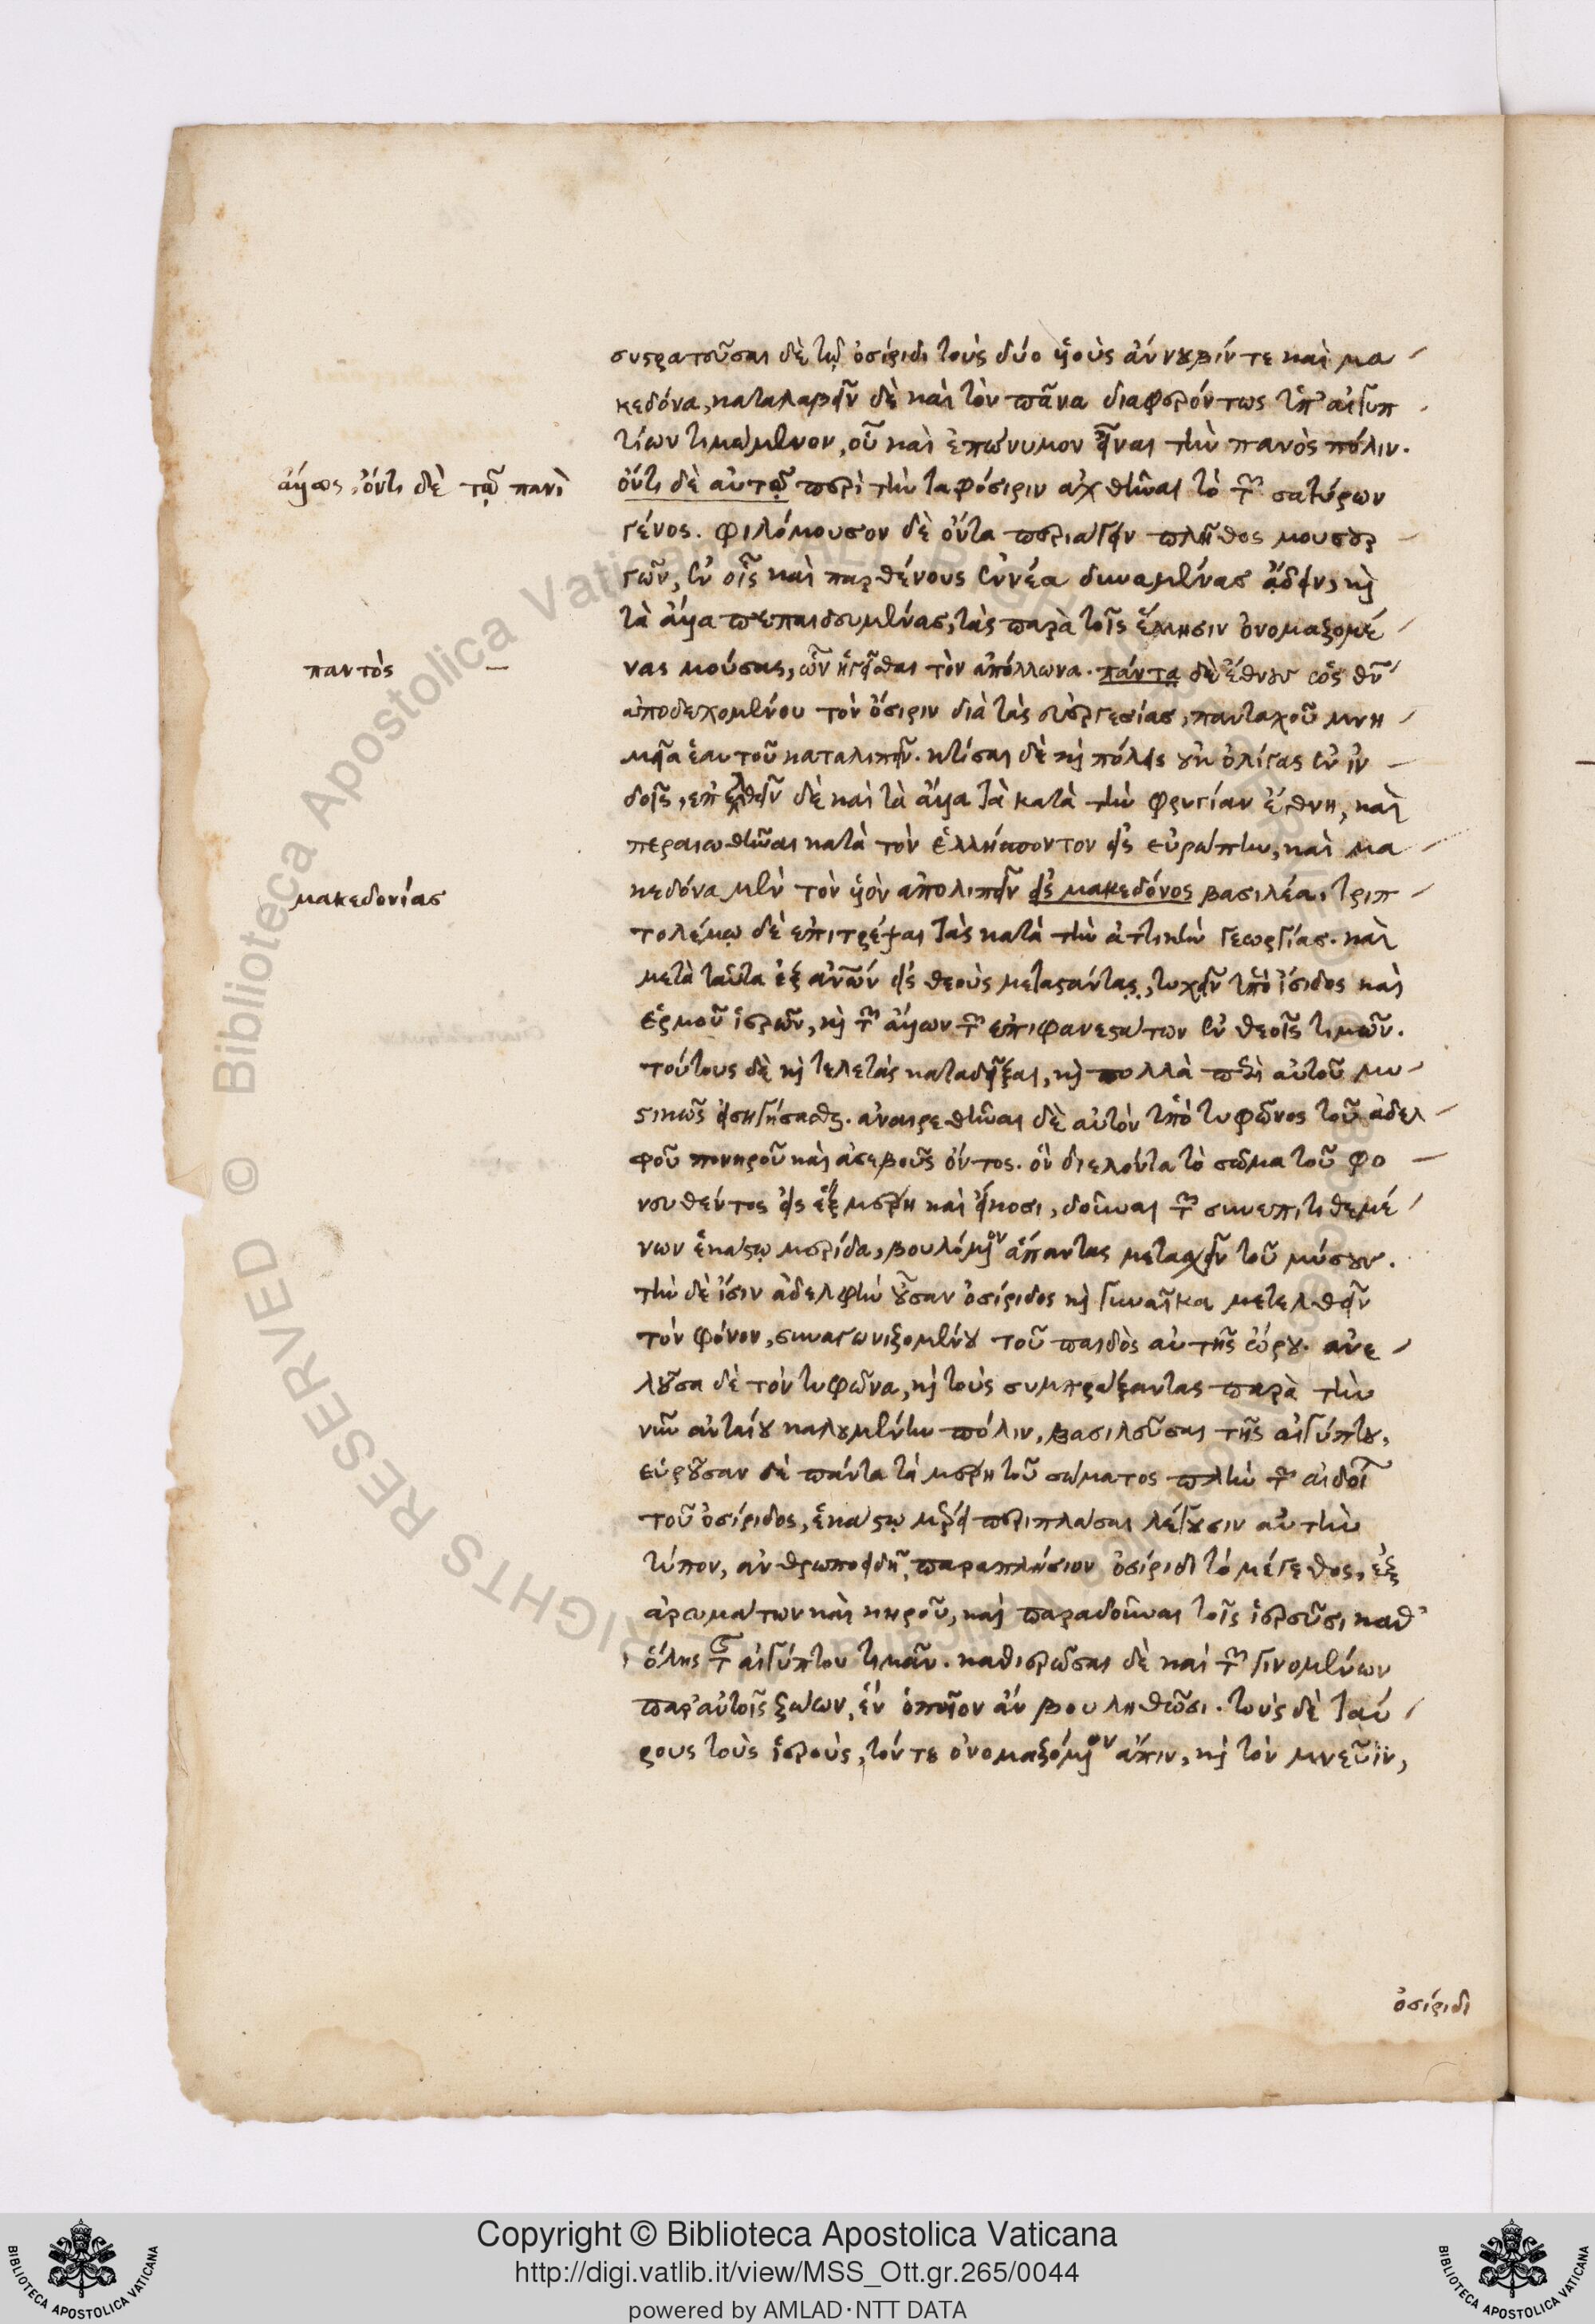 συστρατεῦσαι δὲ τῷ ὀσίριδι τοὺς δύο υἱοὺς ἀννουβίν τε καὶ μα
κεδόνα, καταλαβεῖν δὲ καὶ τὸν πᾶνα διαφερόντως ὑπ' αἰγυπ
τίων τιμώμενον, οὗ καὶ ἐπώνυμον εἶναι τὴν πανὸς πόλιν.
ἄλλως, ὄντι δὲ τῷ πανὶ
ὄντι δὲ αὐτῷ περὶ τὴν ταφόσιριν ἀχθῆναι τὸ τῶν σατύρων
γένος. φιλόμουσον δὲ ὄντα περιάγειν πλῆθος μουσουρ
γῶν, ἐν οἷς καὶ παρθένους ἐννέα δυναμένας ᾄδειν, καὶ
τὰ ἄλλα πεπαιδευμένας, τὰς παρὰ τοῖς ἕλλησιν ὀνομαζομέ
παντὸς
νας μούσας, ὧν ἡγεῖσθαι τὸν ἀπόλλωνα. πάντα δὲ ἔθνους ὡς θεὸν
ἀποδεχομένου τὸν ὄσιριν διὰ τὰς εὐεργεσίας, πανταχοῦ μνη
μεῖα ἑαυτοῦ καταλιπεῖν. κτίσαι δὲ καὶ πόλεις οὐκ ὀλίγας ἐν ἰν
δοῖς, ἐπελθεῖν δὲ καὶ τὰ ἄλλα τὰ κατὰ τὴν φρυγίαν ἔθνη, καὶ
περαιωθῆναι κατὰ τὸν ἑλλήσποντον εἰς εὐρώπην, καὶ μα
μακεδονίας
κεδόνα μὲν τὸν υἱὸν ἀπολιπεῖν εἰς μακεδόνος βασιλέα, τριπ
τολέμῳ δὲ ἐπιτρέψαι τὰς κατὰ τὴν ἀττικὴν γεωργίας. καὶ
μετὰ ταῦτα ἐξ ἀνῶν εἰς θεοὺς μεταστάντας, τυχεῖν ὑπὸ ἴσιδος καὶ
ἑρμοῦ ἱερῶν, καὶ τῶν ἄλλων τῶν ἐπιφανεστάτων ἐν θεοῖς τιμῶν.
τούτους δὲ καὶ τελετὰς καταδεῖξαι, καὶ πολλὰ περὶ αὐτοῦ μυ
στικῶς εἰσηγήσασθαι. ἀναιρεθῆναι δὲ αὐτὸν ὑπὸ τυφῶνος τοῦ ἀδελ
φοῦ πονηροῦ καὶ ἀσεβοῦς ὄντος. ὃν διελόντα τὸ σῶμα τοῦ φο
νευθέντος εἰς ἓξ μέρη καὶ εἴκοσι, δοῦναι τῶν συνεπιτιθεμέ
νων ἑκάστῳ μερίδα, βουλόμενον ἅπαντας μετασχεῖν τοῦ μύσους.
τὴν δὲ ἴσιν ἀδελφὴν οὖσαν ὀσίριδος καὶ γυναῖκα μετελθεῖν
τὸν φόνον, συναγωνιζομένου τοῦ παιδὸς αὐτῆς ὥρου. ἀνε
λοῦσα δὲ τὸν τυφῶνα, καὶ τοὺς συμπράξαντας παρὰ τὴν
νῦν ἀνταίου καλουμένην πόλιν, βασιλεῦσαι τῆς αἰγύπτου,
εὑροῦσαν δὲ πάντα τὰ μέρη τοῦ σώματος πλὴν τῶν αἰδοίων
τοῦ ὀσίριδος, ἑκάστῳ μέρει περιπλάσαι λέγουσιν αὐτὴν
τύπον, ἀνθρωποειδῆ, παραπλήσιον ὀσίριδι τὸ μέγεθος, ἐξ
ἀρωμάτων καὶ κηροῦ, καὶ παραδοῦναι τοῖς ἱερεῦσι καθ'
ὅλης τῆς αἰγύπτου τιμᾶν. καθιερῶσαι δὲ καὶ τῶν γινομένων
παρ' αὐτοῖς ζώων, ἓν ὁποῖον ἂν βουληθῶσι. τοὺς δὲ ταύ
ρους τοὺς ἱεροὺς, τόν τε ὀνομαζόμενον ἄπιν, καὶ τὸν μνεῦϊν,
ὀσίριδι
Copyright © Biblioteca Apostolica Vaticana
http://digi.vatlib.it/view/MSS_Ott.gr.265/0044
powered by AMLAD·NTT DATA